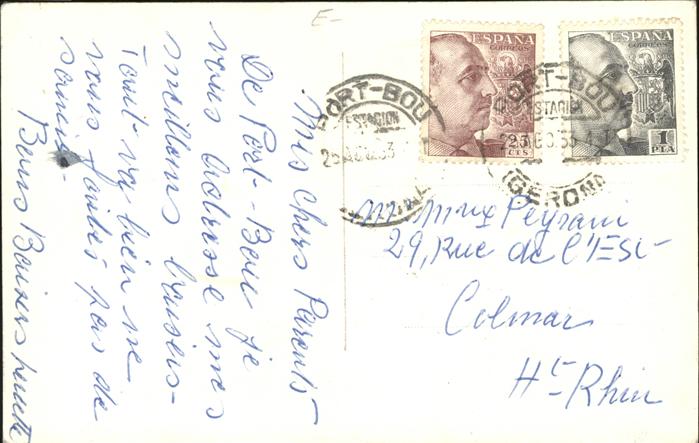 E-
ESPAÑA
CORREOS
25
CTS
ESPAÑA
CORREOS
1
PTA
PORT-BOU
ESTACION
PORT-BOU
ESTACION
(GERONA)
Mes chers Parents
De Port-Bou je
vous adresse mes
meillons baisers-
Tout va bien ne
vous faites pas de
soucis-
Bons Baisers
M Mme Peyrani
29, Rue de l'Est-
Colmar
Ht-Rhin